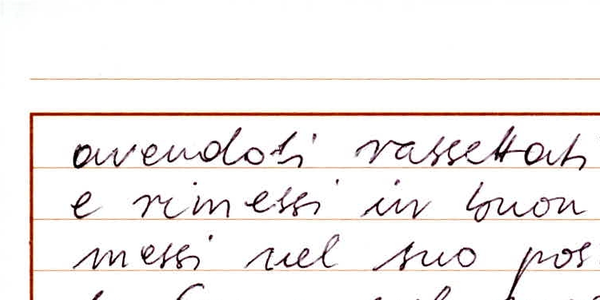 avendoli rassettati
e rimessi in buon
messi nel suo pos